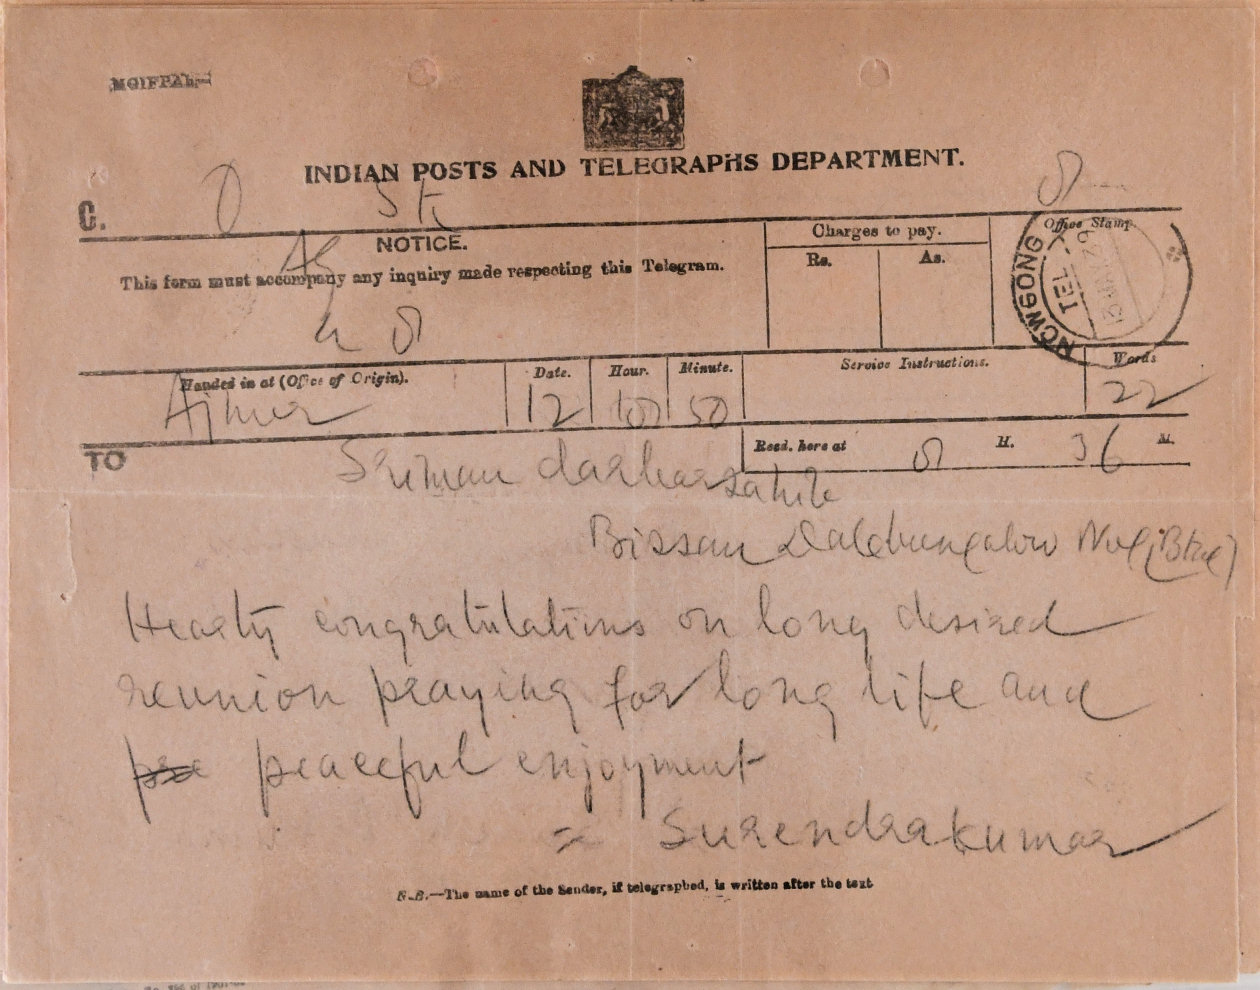 MGIFPAL—
INDIAN POSTS AND TELEGRAPHS DEPARTMENT.
C.
NOTICE.
This form must accompany any inquiry made respecting this Telegram.
Charges to pay.
Rs. As.
Office Stamp
NOWGONG
TEL
Handed in at (Office of Origin). Date. Hour. Minute. Service Instructions. Words
Ajmer 12 50 22
Recd. here at H. 36 M.
TO
Sriman darbarsahib
Bissau Dalebungalow
Hearty congratulations on long desired
reunion praying for long life and
peaceful enjoyment
= Surendrakumar
N.B.—The name of the Sender, if telegraphed, is written after the text